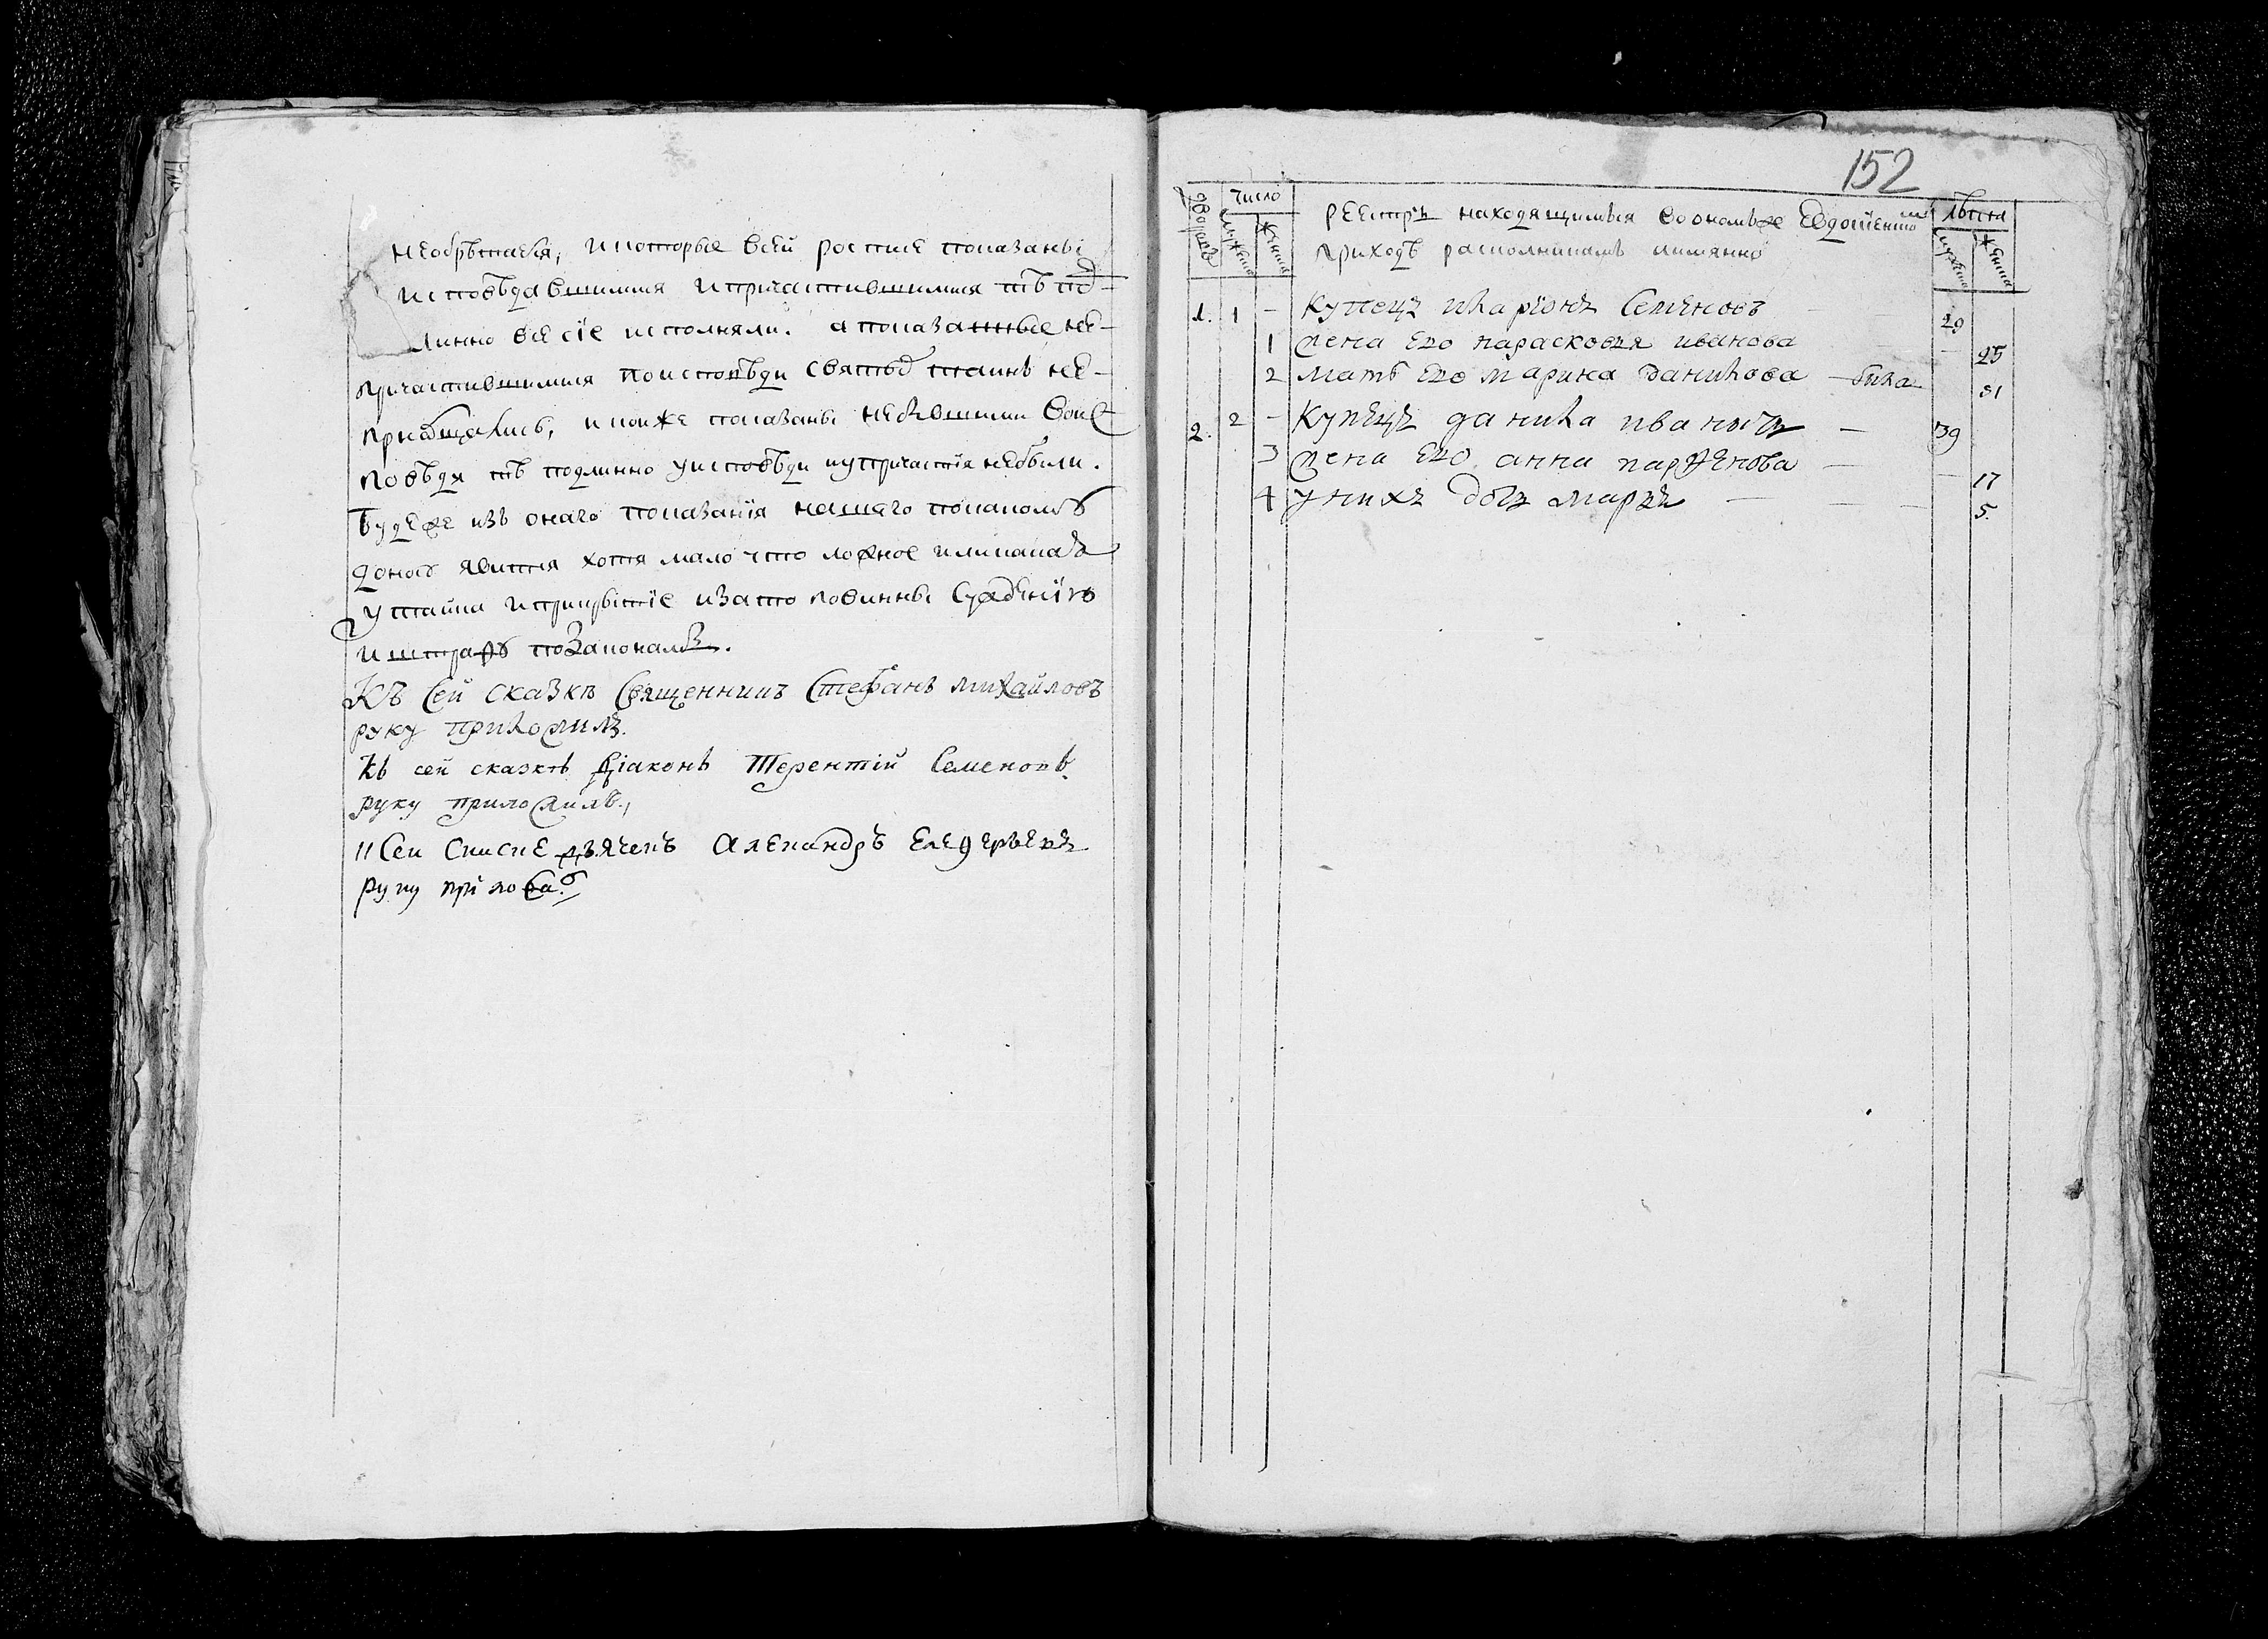 необрѣтается, и которые всей росписе показаны
исповѣдавшимися и причастившимися тѣ под-
линно все сїе исполняли. а показанные не-
причастившимися по исповѣди святыхъ таинъ не-
приобщались, и кои же показаны небывшими во ис
поведи тѣ подлинно у исповѣди и у причастїя небыли.
Буде же изъ онаго показанїя нашего покакомъ
явится хотя мало что ложное или какая
утайка и прикрытїе и за то повинны
и штрафъ по законамъ.
Къ сей сказкѣ священникъ Стефанъ михайловъ
руку приложилъ.
Къ сей сказкѣ Дїаконъ Терентїй Семеновъ
руку приложилъ.,
Сеи списке дьячекъ Алеѯандръ
руку прїложилъ
152
дворовъ
число
мужеска
женска
Реестръ находящимъся во ономъже Евдокїевскомъ
приходѣ расколникамъ имянно
лѣта
мужеска
женска
1. 1 – Купецъ иларїонъ Семеновъ 29
1 жена его парасковья иванова – 25
2 мать его марина данилова – 81
2. 2 – Купецъ данила иванычъ – 39
3 жена его анна парѳенова – 17
4 у нихъ дочь – 5.